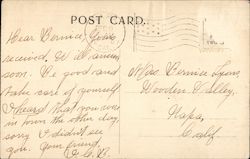 POST CARD.
Dear Bernice, Yours
received. Will answer
soon. Be good and
take care of yourself
I heard that you were
in town the other day,
sorry I didn't see
you. Your friend,
Miss Bernice Lyons
Wooden Valley,
Napa,
Calif.